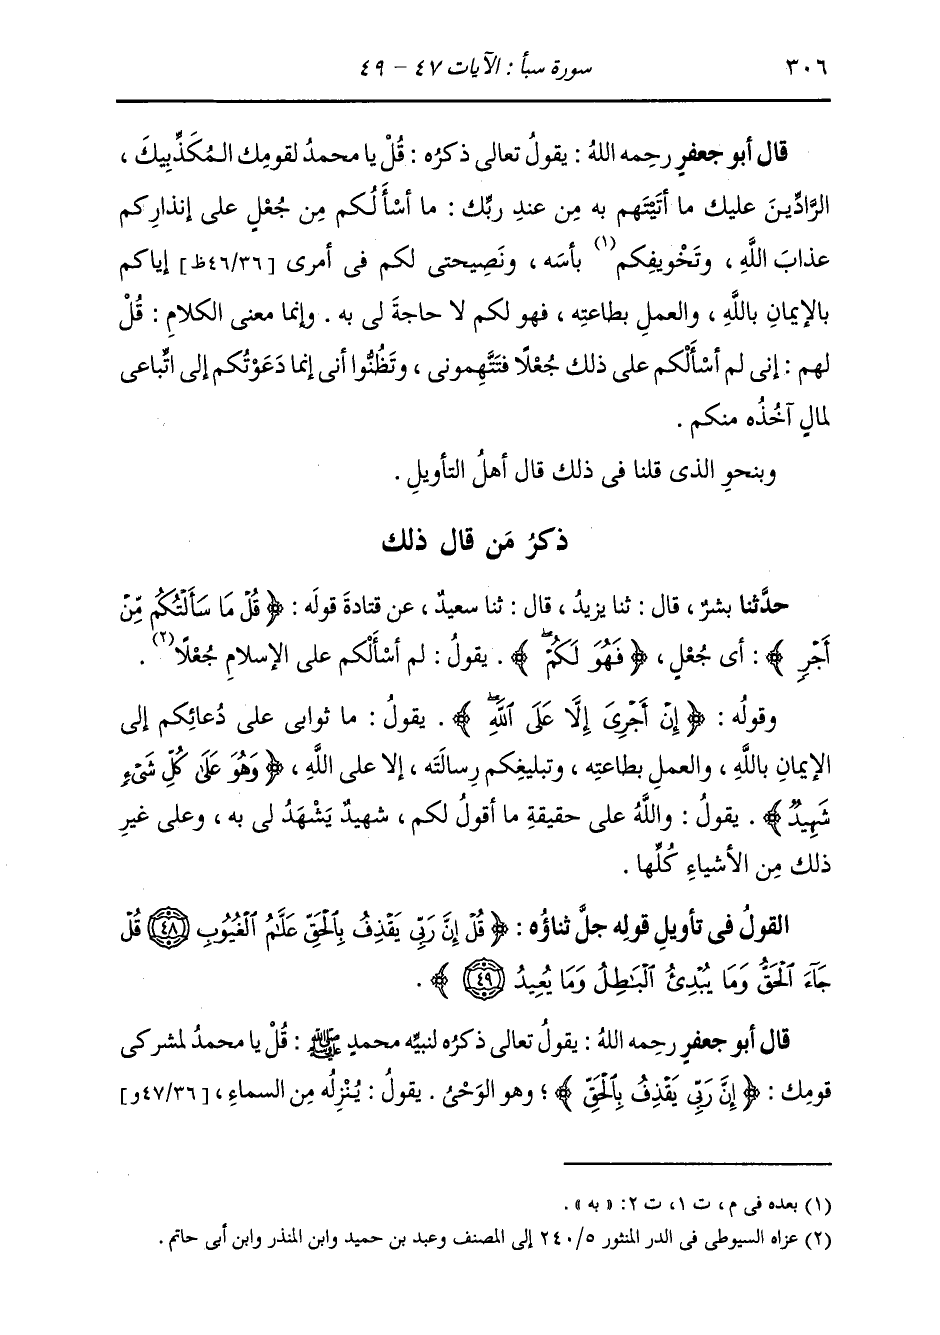 ٣٠٦ سورة سبأ : الآيات ٤٧ - ٤٩
قال أبو جعفرٍ رحمه اللهُ : يقولُ تعالى ذكرُه : قُلْ يا محمدُ لقومِك المُكَذِّبِيكَ ،
الرَّادِّينَ عليك ما أتَيْتَهم به مِن عندِ ربِّك : ما أسْأَلُكم مِن جُعْلٍ على إنذارِكم
عذابَ اللَّهِ ، وتَخْويفِكم(١) بأسَه ، ونَصِيحتى لكم فى أمرى [٤٦/٣٦ظ] إياكم
بالإيمانِ باللَّهِ ، والعملِ بطاعتِه ، فهو لكم لا حاجةَ لى به . وإنما معنى الكلامِ : قُلْ
لهم : إنى لم أسْأَلْكم على ذلك جُعْلًا فتَتَّهِمونى ، وتَظُنُّوا أنى إنما دَعَوْتُكم إلى اتِّباعى
لمالٍ آخُذُه منكم .
وبنحوِ الذى قلنا فى ذلك قال أهلُ التأويلِ .
ذكرُ مَن قال ذلك
حدَّثنا بشرٌ ، قال : ثنا يزيدُ ، قال : ثنا سعيدٌ ، عن قتادةَ قولَه : ﴿ قُلْ مَا سَأَلْتُكُم مِّنْ
أَجْرٍ ﴾ : أى جُعْلٍ ، ﴿ فَهُوَ لَكُمْۖ ﴾ . يقولُ : لم أسأَلْكم على الإسلامِ جُعْلًا(٢) .
وقولُه : ﴿ إِنْ أَجْرِىَ إِلَّا عَلَى ٱللَّهِۖ ﴾ . يقولُ : ما ثوابى على دُعائِكم إلى
الإيمانِ باللَّهِ ، والعملِ بطاعتِه ، وتبليغِكم رِسالتَه ، إلا على اللَّهِ ، ﴿ وَهُوَ عَلَىٰ كُلِّ شَىْءٍ
شَهِيدٌ ﴾ . يقولُ : واللَّهُ على حقيقةِ ما أقولُ لكم ، شهيدٌ يَشْهَدُ لى به ، وعلى غيرِ
ذلك مِن الأشياءِ كُلِّها .
القولُ فى تأويلِ قولِه جلَّ ثناؤُه : ﴿ قُلْ إِنَّ رَبِّى يَقْذِفُ بِٱلْحَقِّ عَلَّٰمُ ٱلْغُيُوبِ ٤٨ قُلْ
جَآءَ ٱلْحَقُّ وَمَا يُبْدِئُ ٱلْبَٰطِلُ وَمَا يُعِيدُ ٤٩ ﴾ .
قال أبو جعفرٍ رحمه اللهُ : يقولُ تعالى ذكرُه لنبيِّه محمدٍ ﷺ : قُلْ يا محمدُ لمشركى
قومِك : ﴿ إِنَّ رَبِّى يَقْذِفُ بِٱلْحَقِّ ﴾ ؛ وهو الوَحْىُ . يقولُ : يُنْزِلُه مِن السماءِ ، [٤٧/٣٦و]
(١) بعده فى م، ت ١، ت ٢: « به » .
(٢) عزاه السيوطى فى الدر المنثور ٢٤٠/٥ إلى المصنف وعبد بن حميد وابن المنذر وابن أبى حاتم .